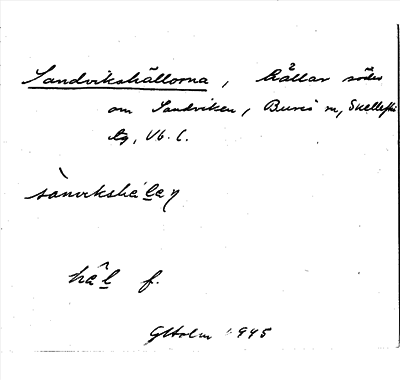 Sandvikshällorna, hällar söder
om Sandviken, Bureå sn, Skellefteå
tg, Vb. l.
hä̂l f.
GHolm 1945